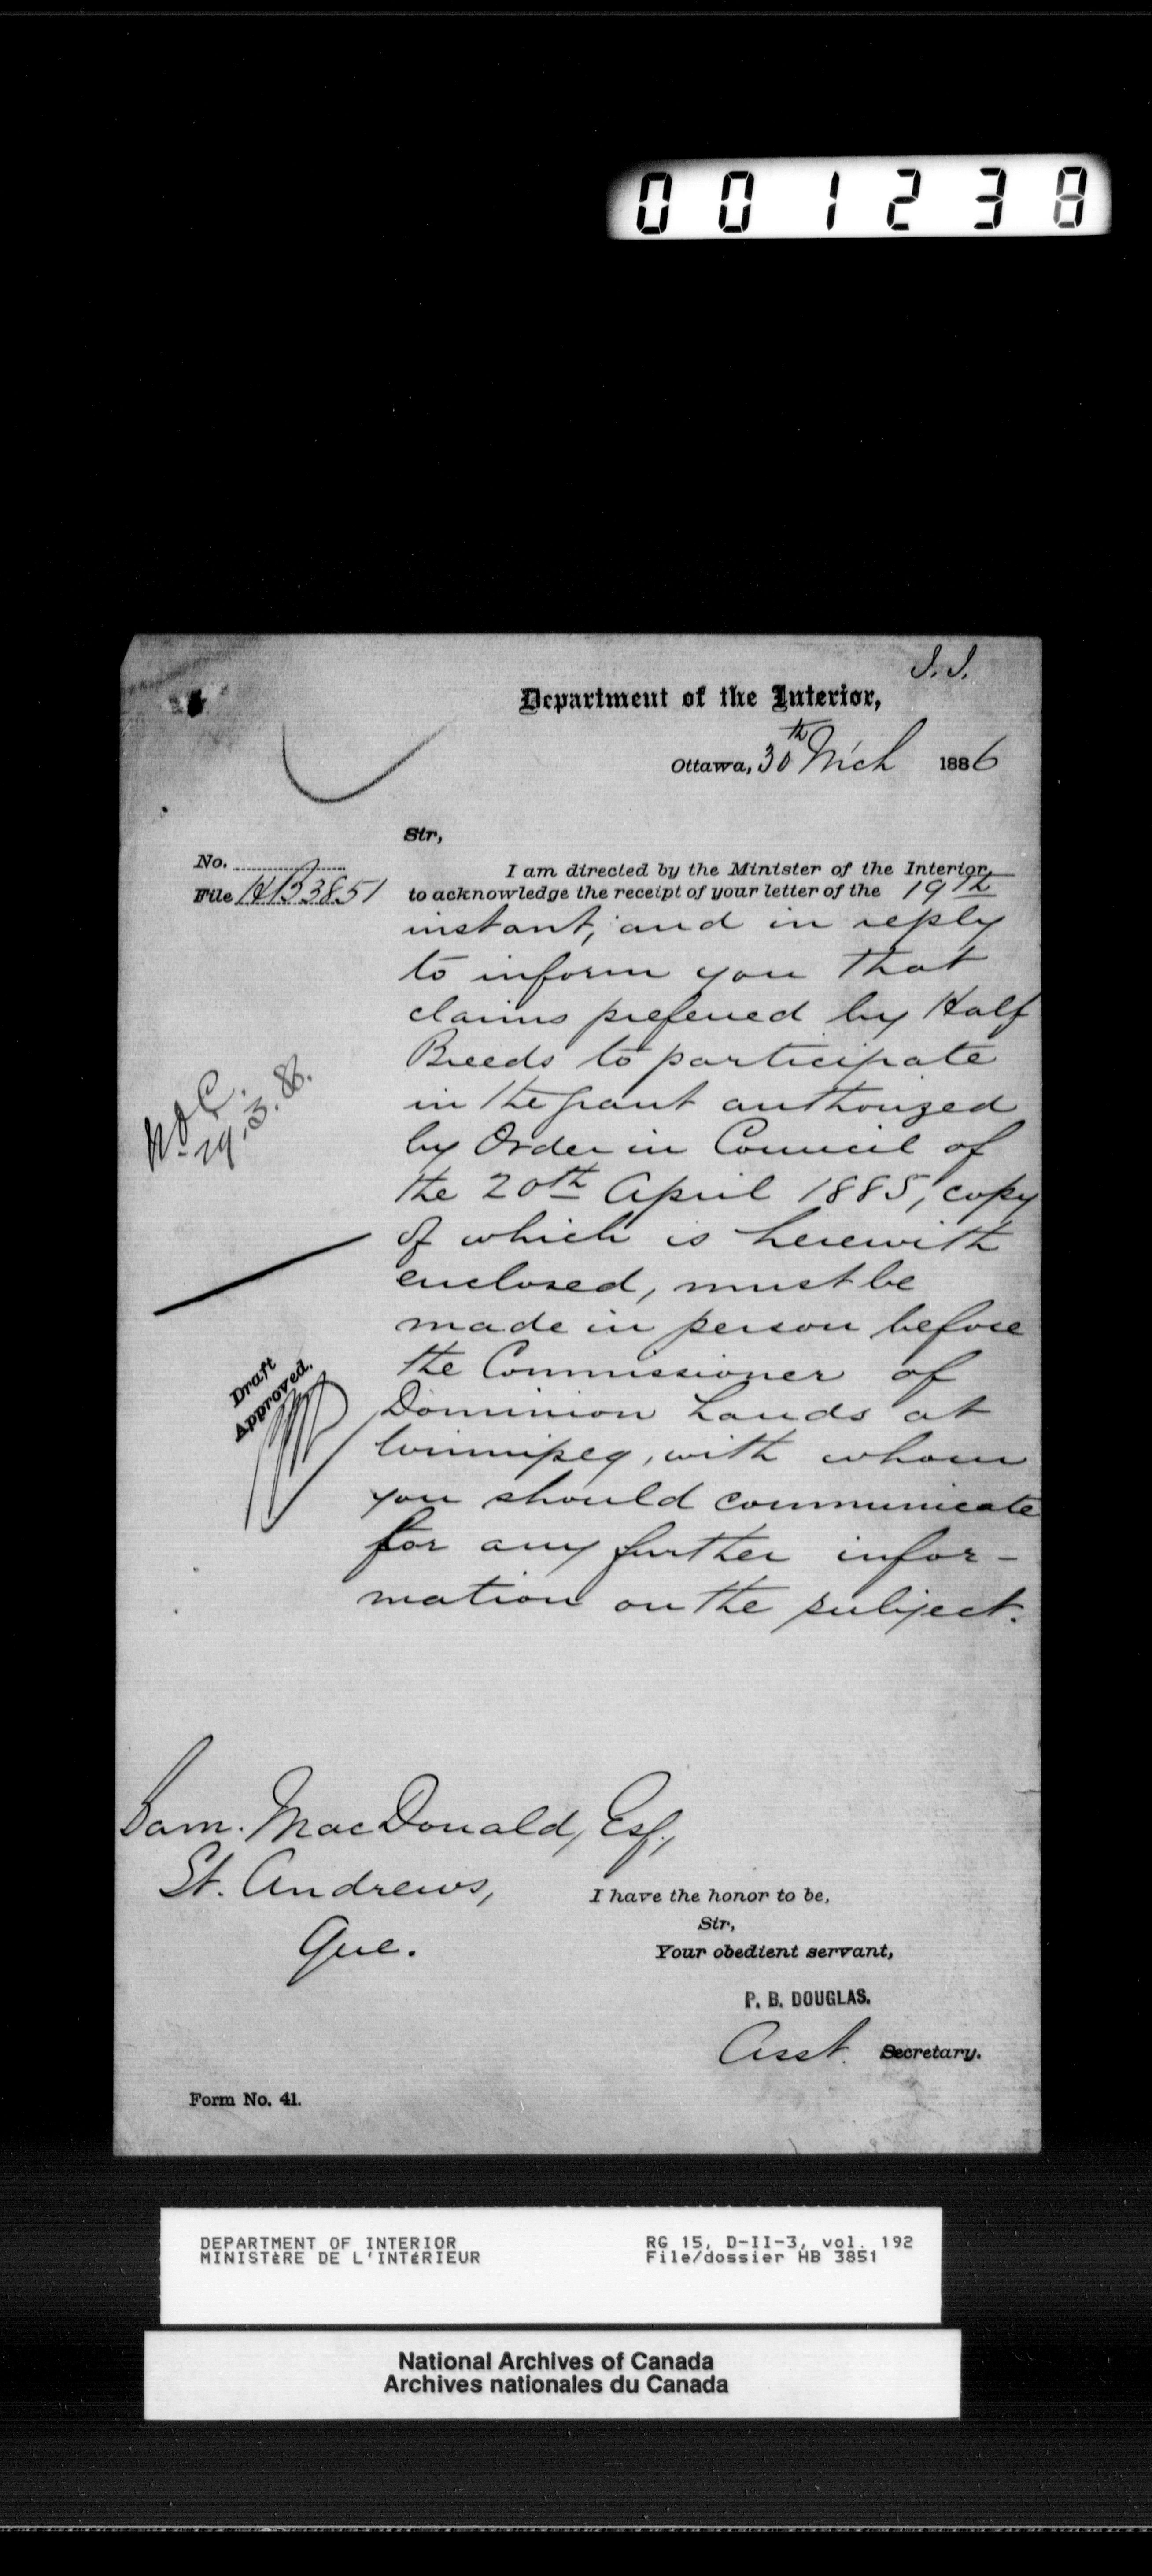 001238
J.J.
Department of the Interior,
Ottawa, 30th Mch 1886
Sir,
No.
File HB3851
I am directed by the Minister of the Interior,
to acknowledge the receipt of your letter of the 19th
instant, and in reply
to inform you that
claims preferred by Half
Breeds to participate
in the grant authorized
by Order in Council of
the 20th April 1885, copy
of which is herewith
enclosed, must be
made in person before
the Commissioner of
Dominion Lands at
Winnipeg, with whom
you should communicate
for any further infor-
mation on the subject.
Draft
Approved.
Sam. MacDonald, Esq.,
St. Andrews,
Que.
I have the honor to be,
Sir,
Your obedient servant,
P. B. DOUGLAS.
Asst. Secretary.
Form No. 41.
DEPARTMENT OF INTERIOR
MINISTÈRE DE L'INTÉRIEUR
RG 15, D-II-3, vol. 192
File/dossier HB 3851
National Archives of Canada
Archives nationales du Canada